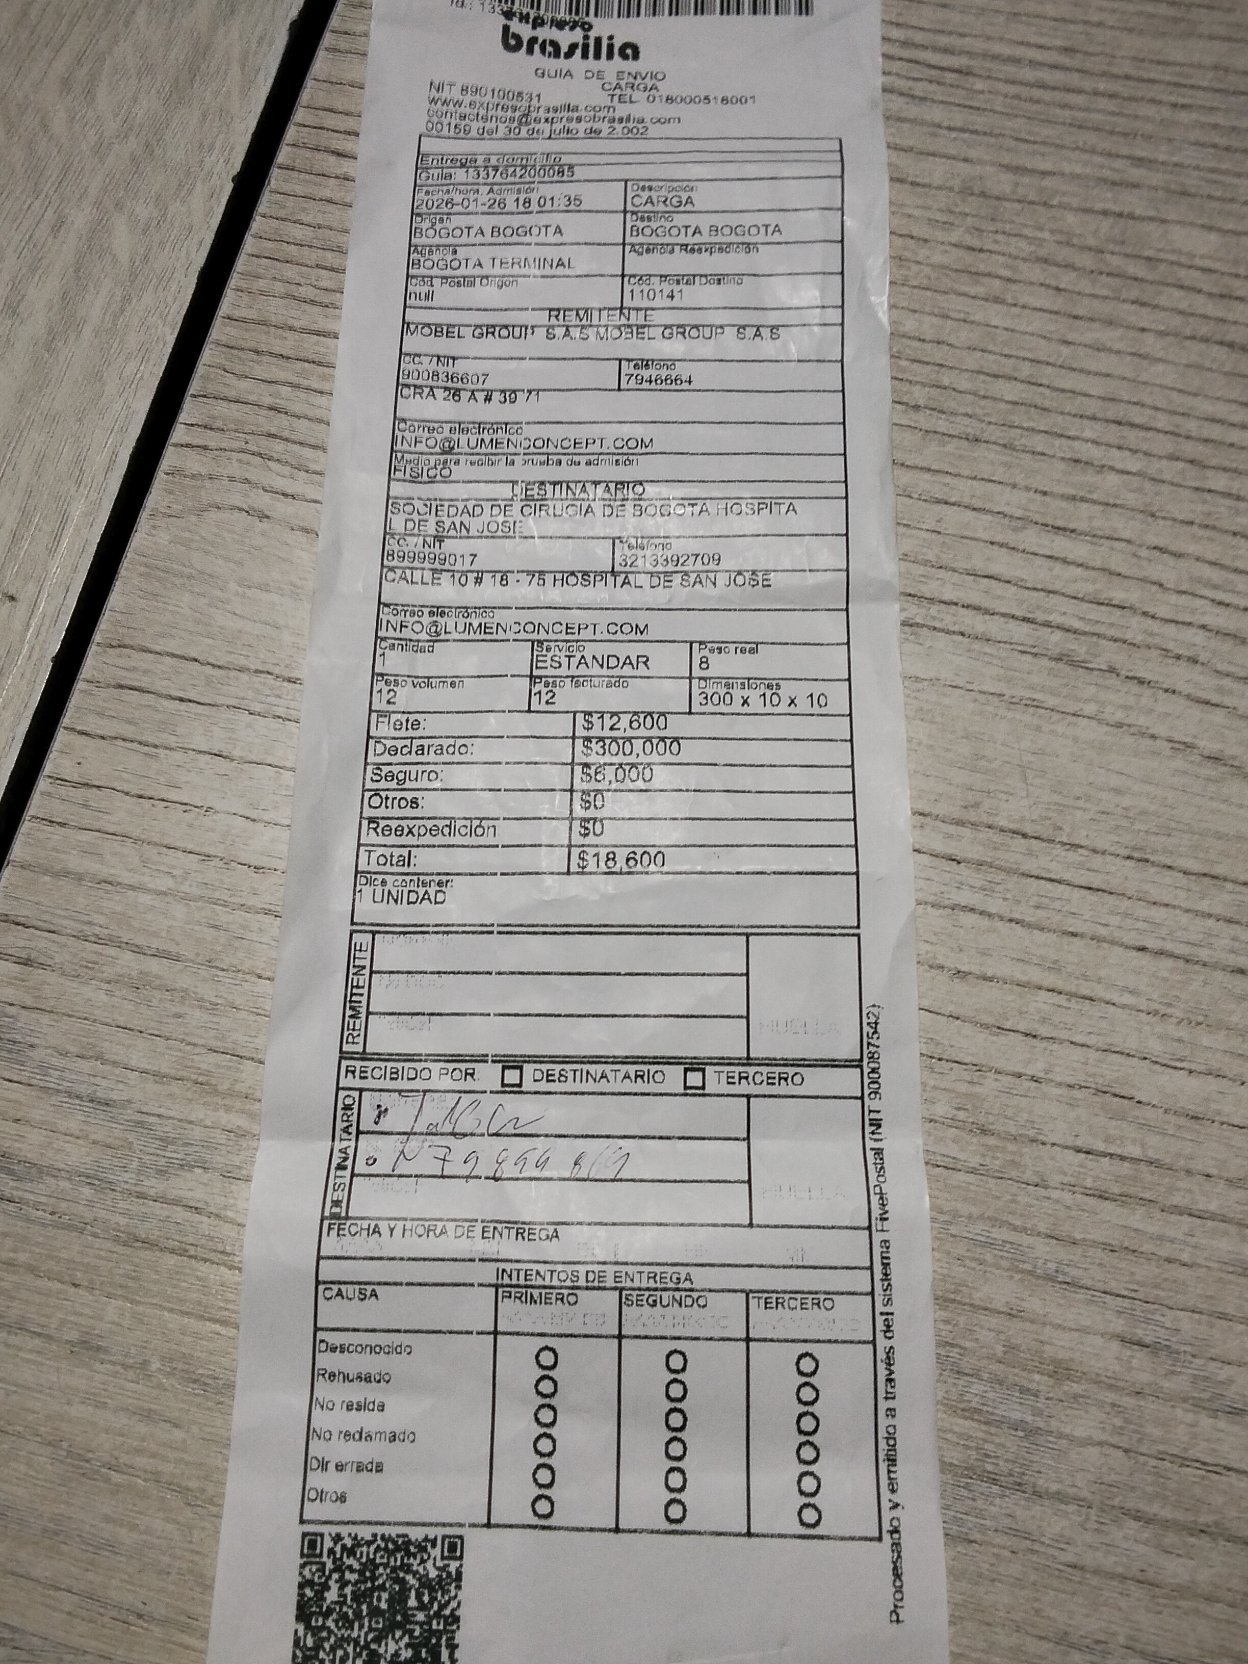 expreso
brasilia
GUIA DE ENVIO
CARGA
NIT 890100531
TEL 018000518001
www.expresobrasilia.com
contactenos@expresobrasilia.com
00159 del 30 de julio de 2.002
Entrega a domicilio
Guia: 133764200085
Fecha/hora. Admisión
2026-01-26 18 01:35
Descripción
CARGA
Origen
BOGOTA BOGOTA
Destino
BOGOTA BOGOTA
Agencia
BOGOTA TERMINAL
Agencia Reexpedición
Cód. Postal Origen
null
Cód. Postal Destino
110141
REMITENTE
MOBEL GROUP S.A.S MOBEL GROUP S.A.S
CC. / NIT
900836607
Teléfono
7946664
CRA 26 A # 39 71
Correo electrónico
INFO@LUMENCONCEPT.COM
Medio para recibir la prueba de admisión
FISICO
DESTINATARIO
SOCIEDAD DE CIRUGIA DE BOGOTA HOSPITA
L DE SAN JOSE
CC. / NIT
899999017
Teléfono
3213392709
CALLE 10 # 18 - 75 HOSPITAL DE SAN JOSE
Correo electrónico
INFO@LUMENCONCEPT.COM
Cantidad
1
Servicio
ESTANDAR
Peso real
8
Peso volumen
12
Peso facturado
12
Dimensiones
300 x 10 x 10
Flete: $12,600
Declarado: $300,000
Seguro: $6,000
Otros: $0
Reexpedición $0
Total: $18,600
Dice contener:
1 UNIDAD
REMITENTE
HUELLA
RECIBIDO POR: DESTINATARIO TERCERO
DESTINATARIO
HUELLA
FECHA Y HORA DE ENTREGA
INTENTOS DE ENTREGA
CAUSA PRIMERO SEGUNDO TERCERO
Desconocido
Rehusado
No reside
No reclamado
Dir errada
Otros
Procesado y emitido a través del sistema FivePostal (NIT 900087542)